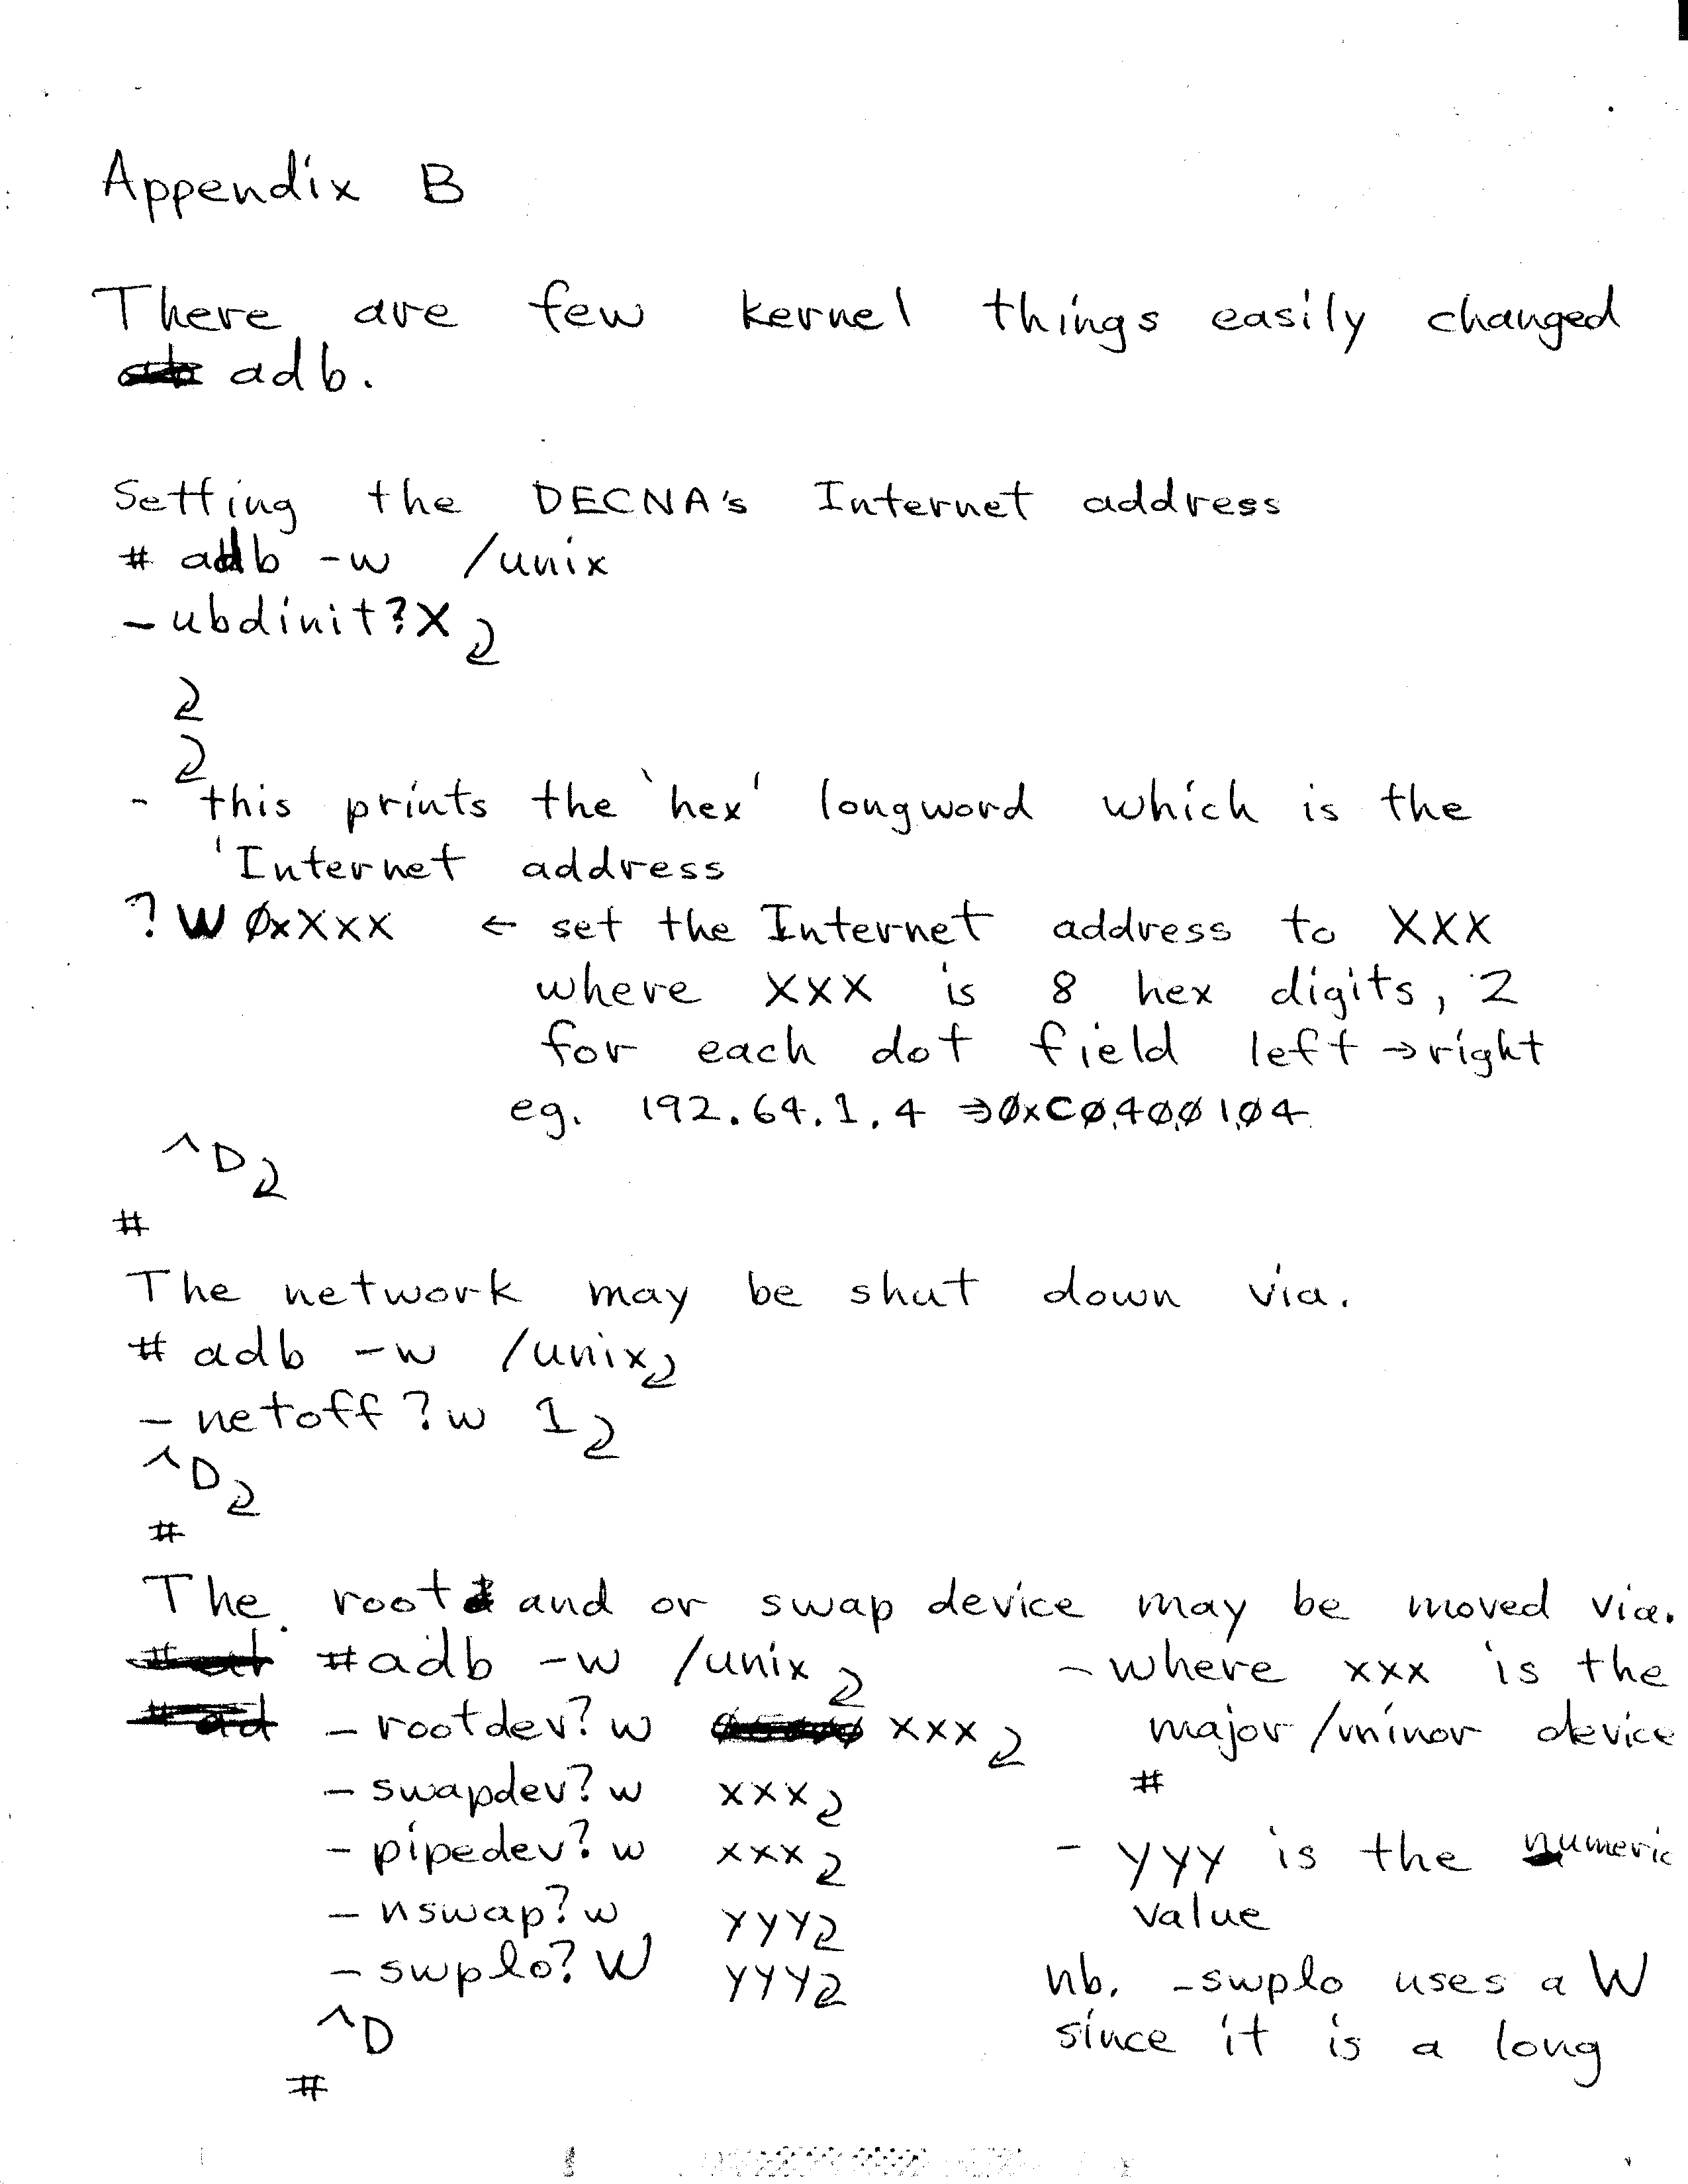 Appendix B
There are few kernel things easily changed
adb.
Setting the DECNA's Internet address
# adb -w /unix
_ubdinit?X ⤶
⤶
⤶
- this prints the 'hex' longword which is the
'Internet address
?W 0xXXX ← set the Internet address to XXX
where XXX is 8 hex digits, 2
for each dot field left → right
eg. 192.64.1.4 ⇒ 0xC0,40,01,04
^D ⤶
#
The network may be shut down via.
# adb -w /unix ⤶
_netoff?w 1 ⤶
^D ⤶
#
The root and or swap device may be moved via.
#adb -w /unix ⤶ - where xxx is the
_rootdev?w xxx ⤶ major/minor device
_swapdev?w xxx ⤶ #
_pipedev?w xxx ⤶ - yyy is the numeric
_nswap?w yyy ⤶ value
_swplo?W yyy ⤶ nb. _swplo uses a W
^D since it is a long
#